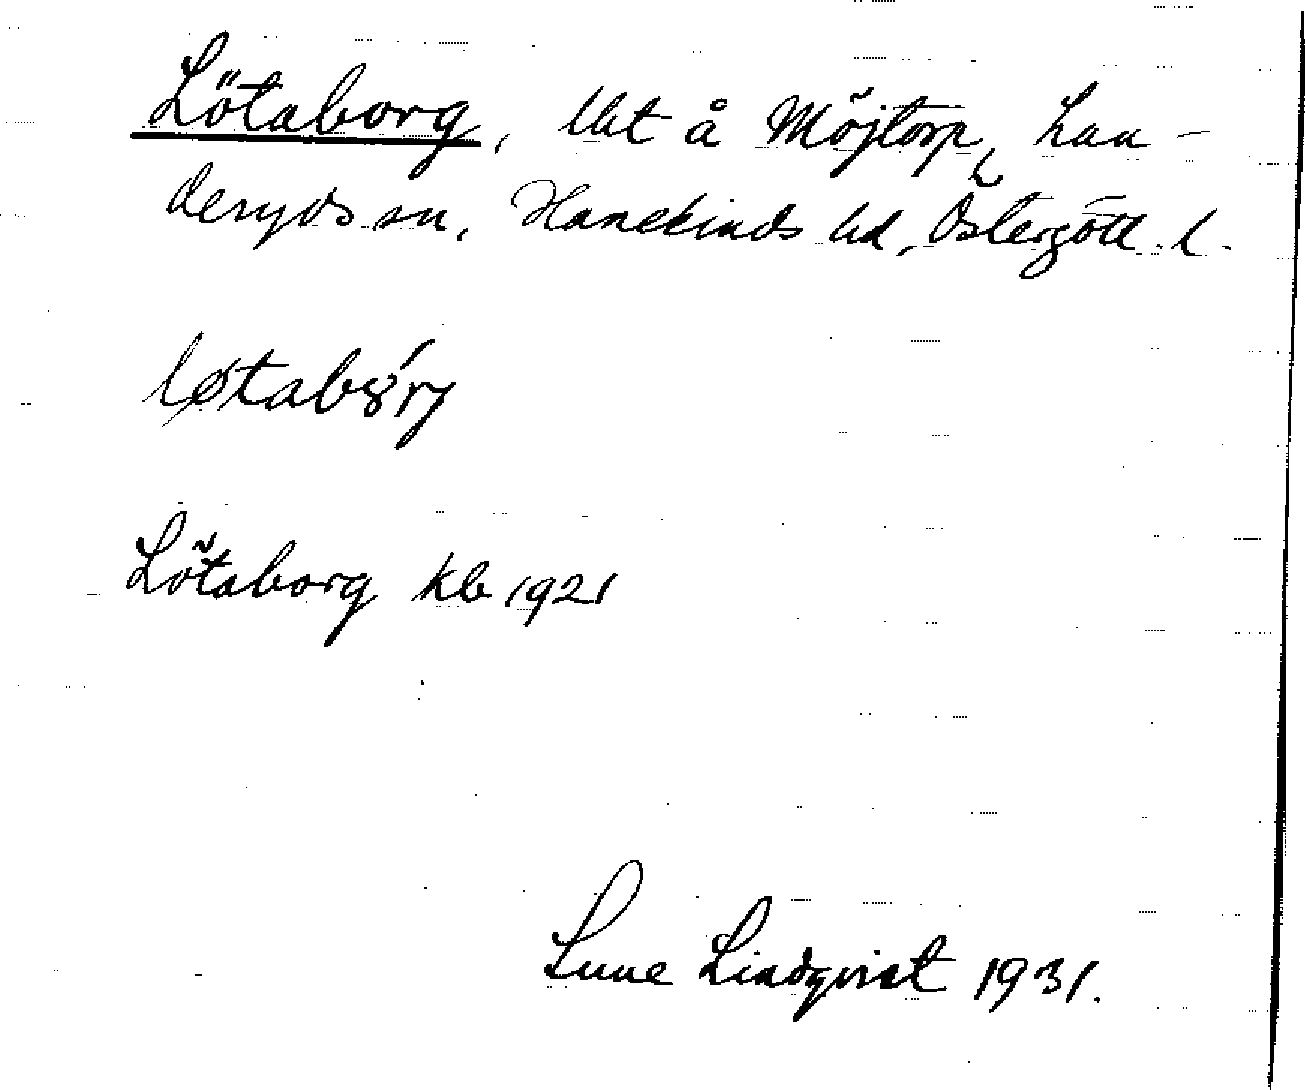 Lötaborg, lht å Möjtorp, Lan-
deryds sn, Hanekinds hd, Östergötl. l.
løtabór̡
Lötaborg kb 1921
Sune Lindqvist 1931.